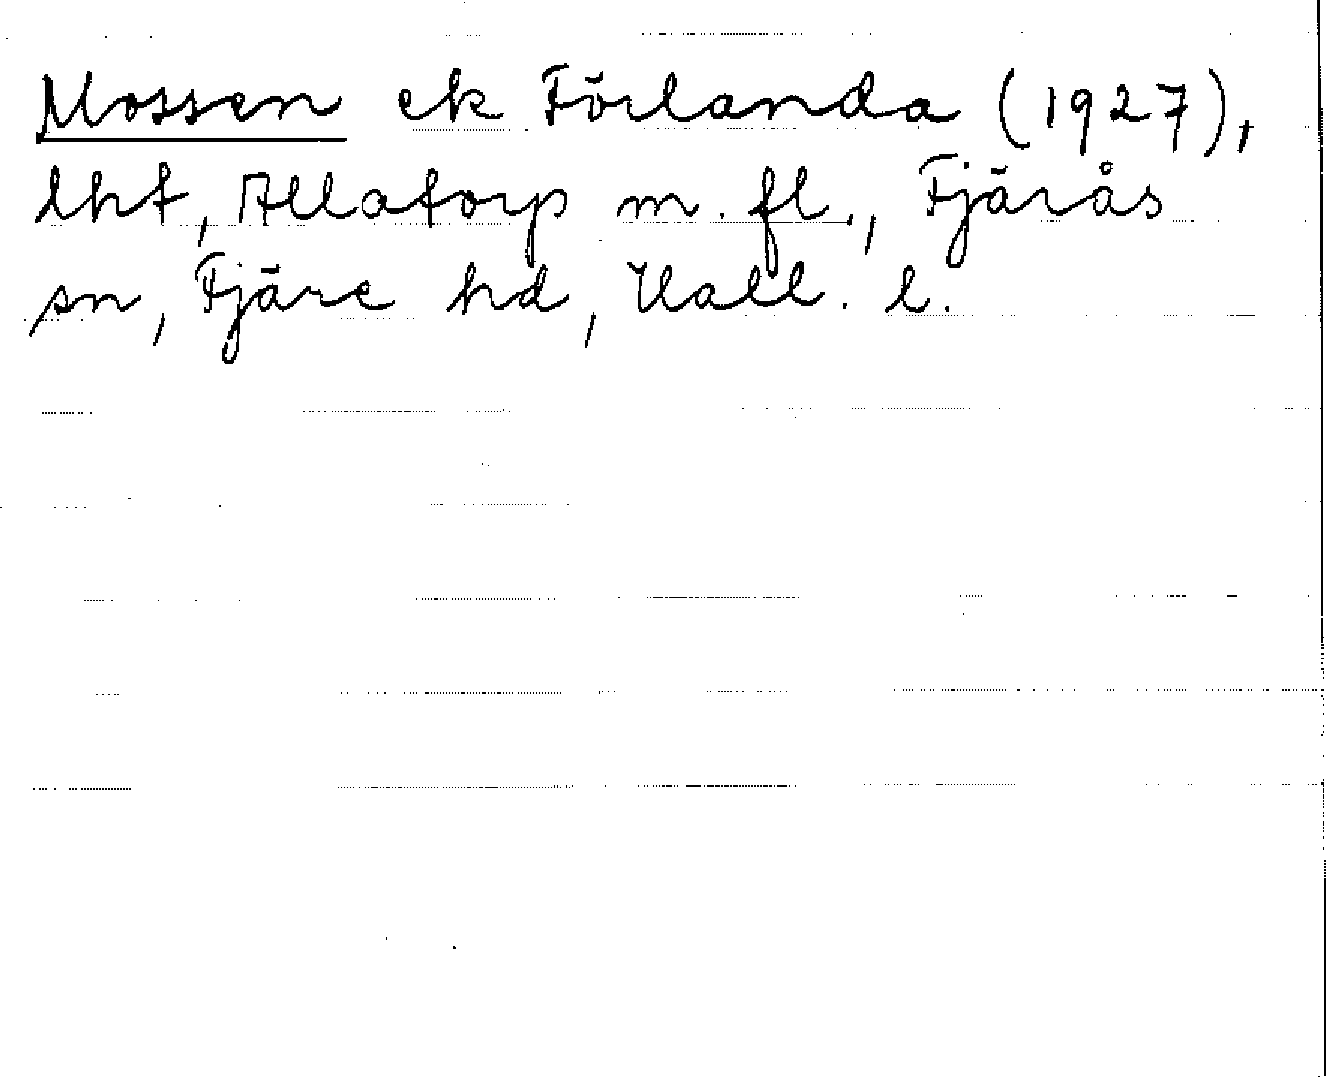 Mossen ek Förlanda (1927),
lht, Allatorp m. fl., Fjärås
sn, Fjäre hd, Hall. l.